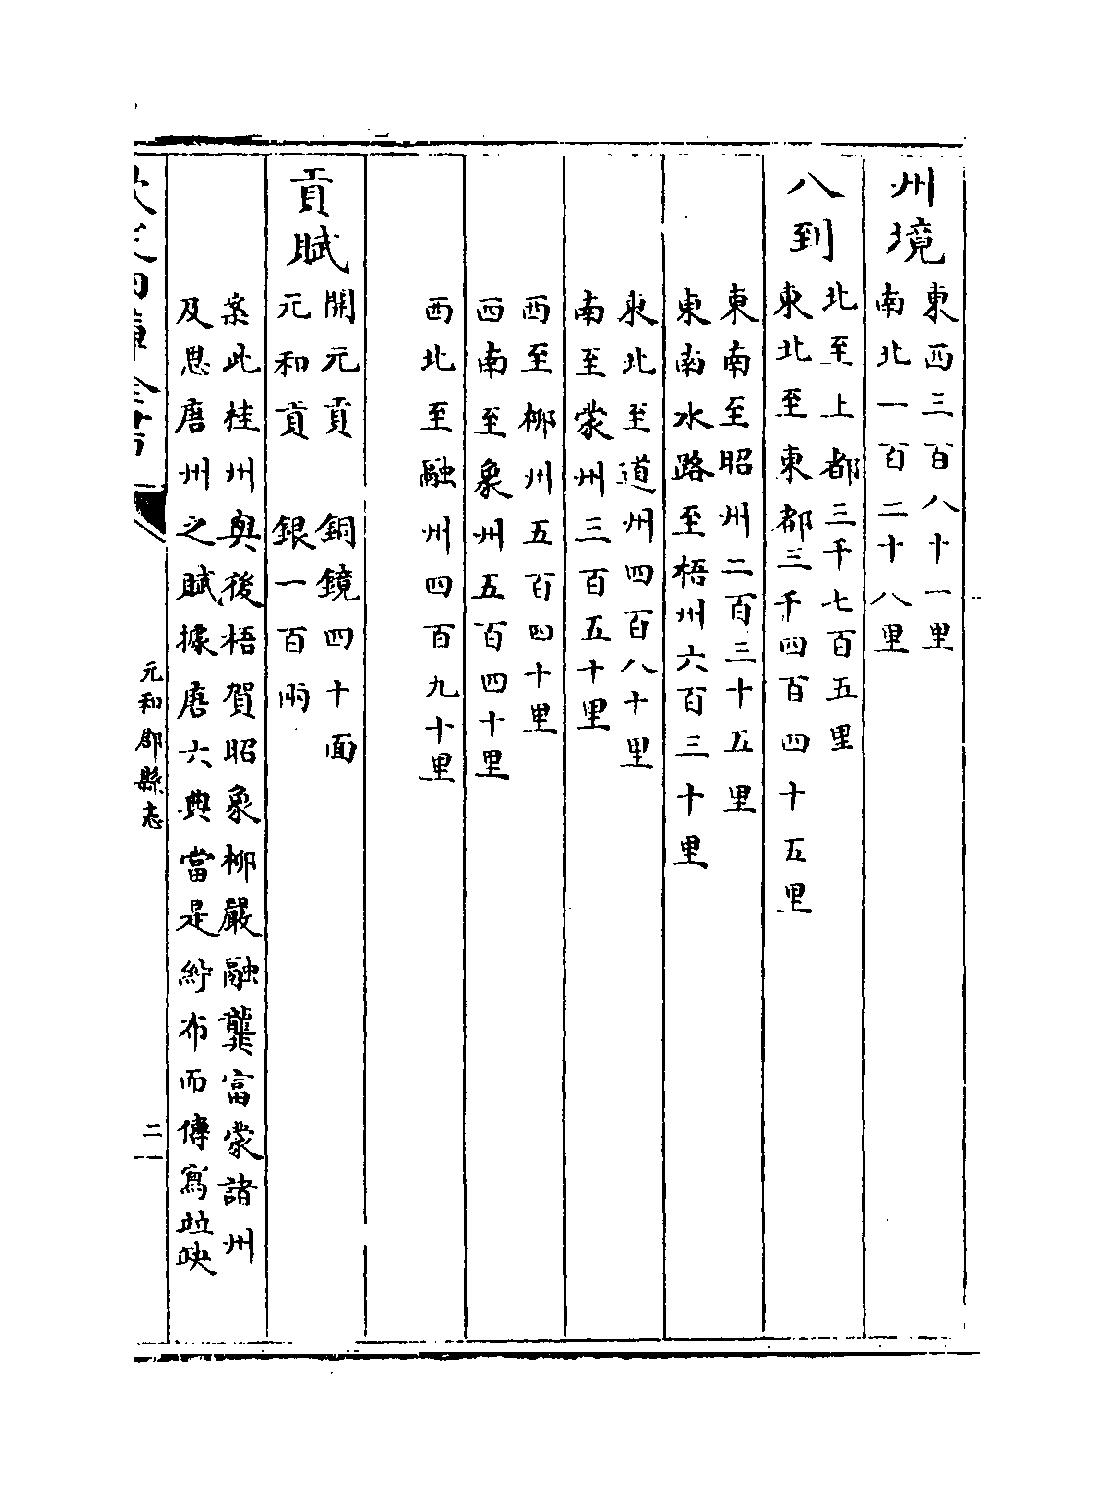 州境東西三百八十一里
南北一百二十八里
八到北至上都三千七百五里
東北至東都三千四百四十五里
東南至昭州二百三十五里
東南水路至梧州六百三十里
東北至道州四百八十里
南至蒙州三百五十里
西至柳州五百四十里
西南至象州五百四十里
西北至融州四百九十里
貢賦開元貢 銅鏡四十面
元和貢 銀一百兩
案此桂州與後梧賀昭象柳嚴融龔富蒙諸州
及思唐州之賦據唐六典當是紵布而傳寫竝缺
欽定四庫全書
元和郡縣志
二